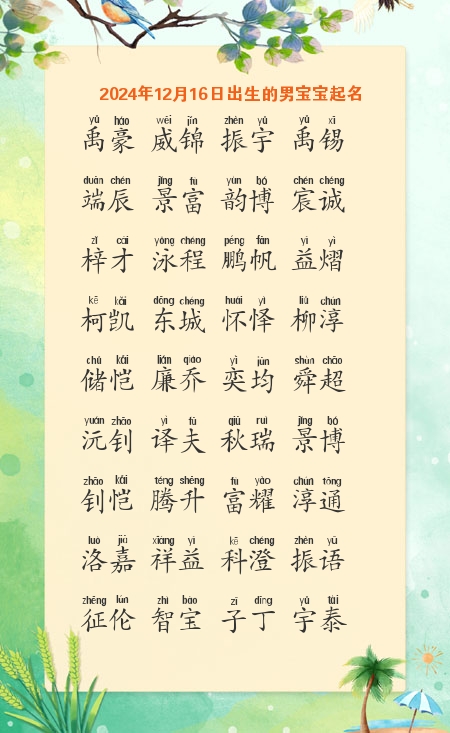 2024年12月16日出生的男宝宝起名
yǔ háo wēi jǐn zhèn yǔ yǔ xī
禹豪 威锦 振宇 禹锡
duān chén jǐng fù yùn bó chén chéng
端辰 景富 韵博 宸诚
zǐ cái yǒng chéng péng fān yì yì
梓才 泳程 鹏帆 益熠
kē kǎi dōng chéng huái yì liǔ chún
柯凯 东城 怀怿 柳淳
chǔ kǎi lián qiáo yì jūn shùn chāo
储恺 廉乔 奕均 舜超
yuán zhāo yì fū qiū ruì jǐng bó
沅钊 译夫 秋瑞 景博
zhāo kǎi téng shēng fù yào chún tōng
钊恺 腾升 富耀 淳通
luò jiā xiáng yì kē chéng zhèn yǔ
洛嘉 祥益 科澄 振语
zhēng lún zhì bǎo zǐ dīng yǔ tài
征伦 智宝 子丁 宇泰